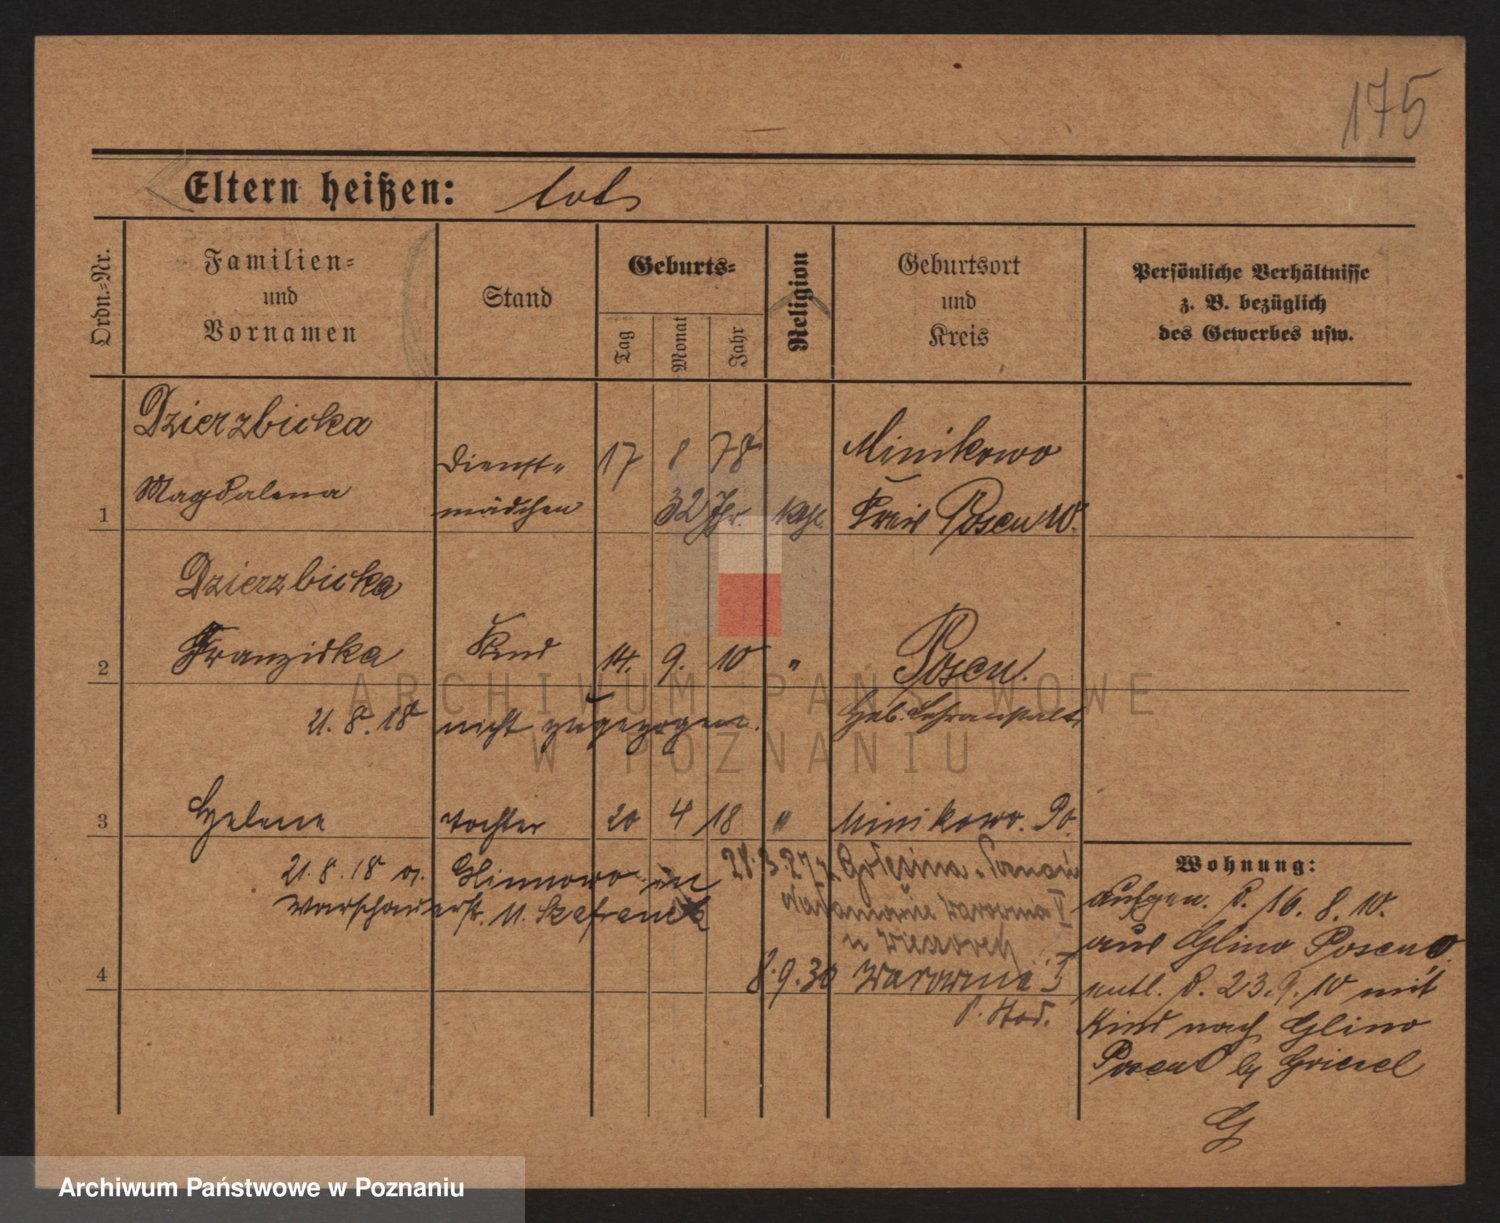 175
Eltern heißen: tot
Ordn.-Nr.
Familien-
und
Vornamen
Stand
Geburts-
Tag
Monat
Jahr
Religion
Geburtsort
und
Kreis
Persönliche Verhältnisse
z. B. bezüglich
des Gewerbes usw.
Dzierzbicka
Magdalena
Dienst-
mädchen
17 8 78
32 Jhr.
kth.
Minikowo
Kreis Posen W.
1
Dzierzbicka
Franziska
Kind
14. 9. 10 "
Posen.
2
Heb. Lehranstalt
21.8.18 nicht zugezogen.
3
Helene
Tochter
20 4 18 "
Minikowo. Po.
21.8.18 a. Glinnowo in
Warschauerstr. 11.
28.3.27 z Golęcina - Poznań
8.9.30 Warowna
4
Wohnung:
Aufgen. d. 16. 8. 10.
aus Glino Posen O.
entl. d. 23.9.10 mit
Kind nach Glino
Posen O by Griesel
G
ARCHIWUM PAŃSTWOWE
W POZNANIU
Archiwum Państwowe w Poznaniu